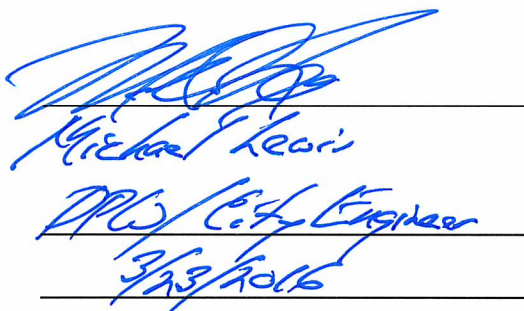 Michael Lewis
DPW/City Engineer
3/23/2016